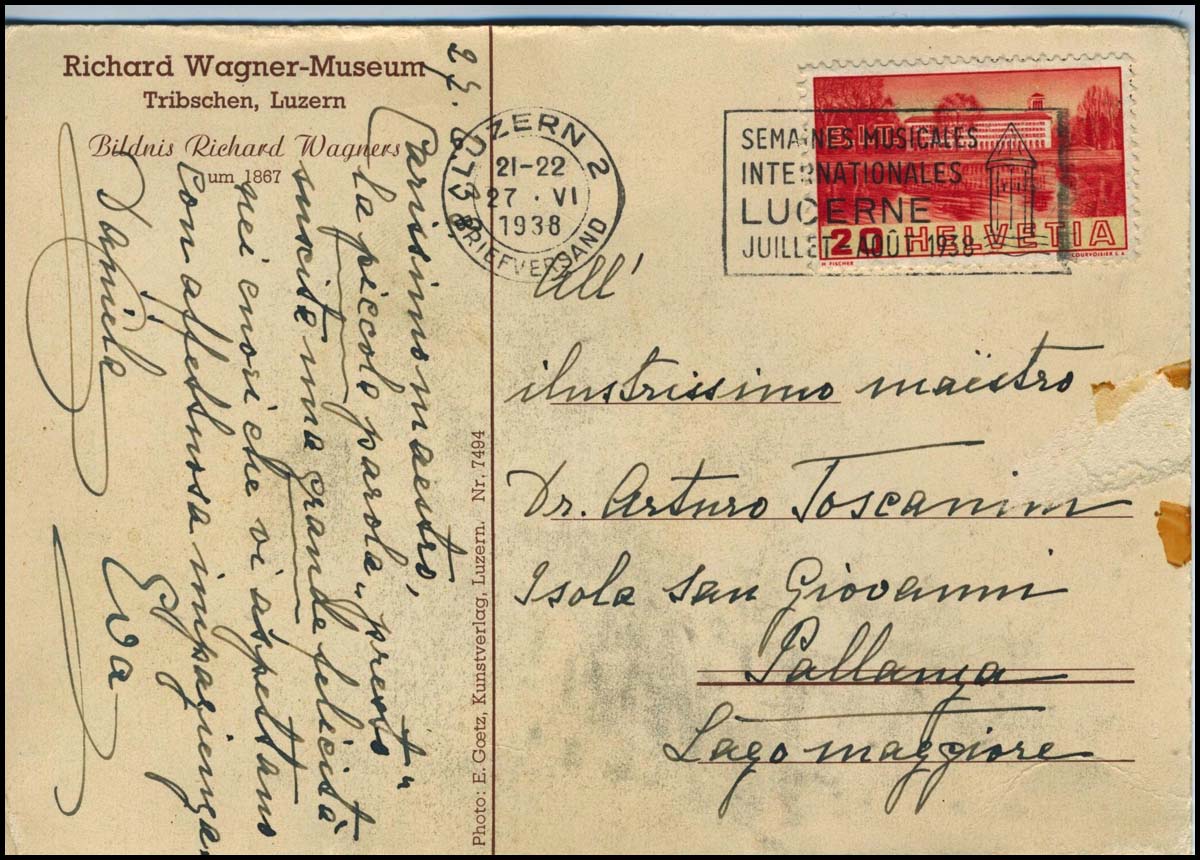 Richard Wagner-Museum
Tribschen, Luzern
Bildnis Richard Wagners
um 1867
27. 6. 1938.
Carissimo maestro,
la piccola parola „presto"
suscita una grande felicità
nei cuori che vi aspettano
con affettuosa impazienza.
Daniela Eva
Photo: E. Gœtz, Kunstverlag, Luzern. Nr. 7494
LUZERN 2
21-22
27 · VI
1938
BRIEFVERSAND
SEMAINES MUSICALES
INTERNATIONALES
LUCERNE
JUILLET - AOÛT 1938
20 HELVETIA
H. FISCHER
COURVOISIER S.A.
All'
ilustrissimo maëstro
Dr. Arturo Toscanini
Isola San Giovanni
Pallanza
Lago maggiore